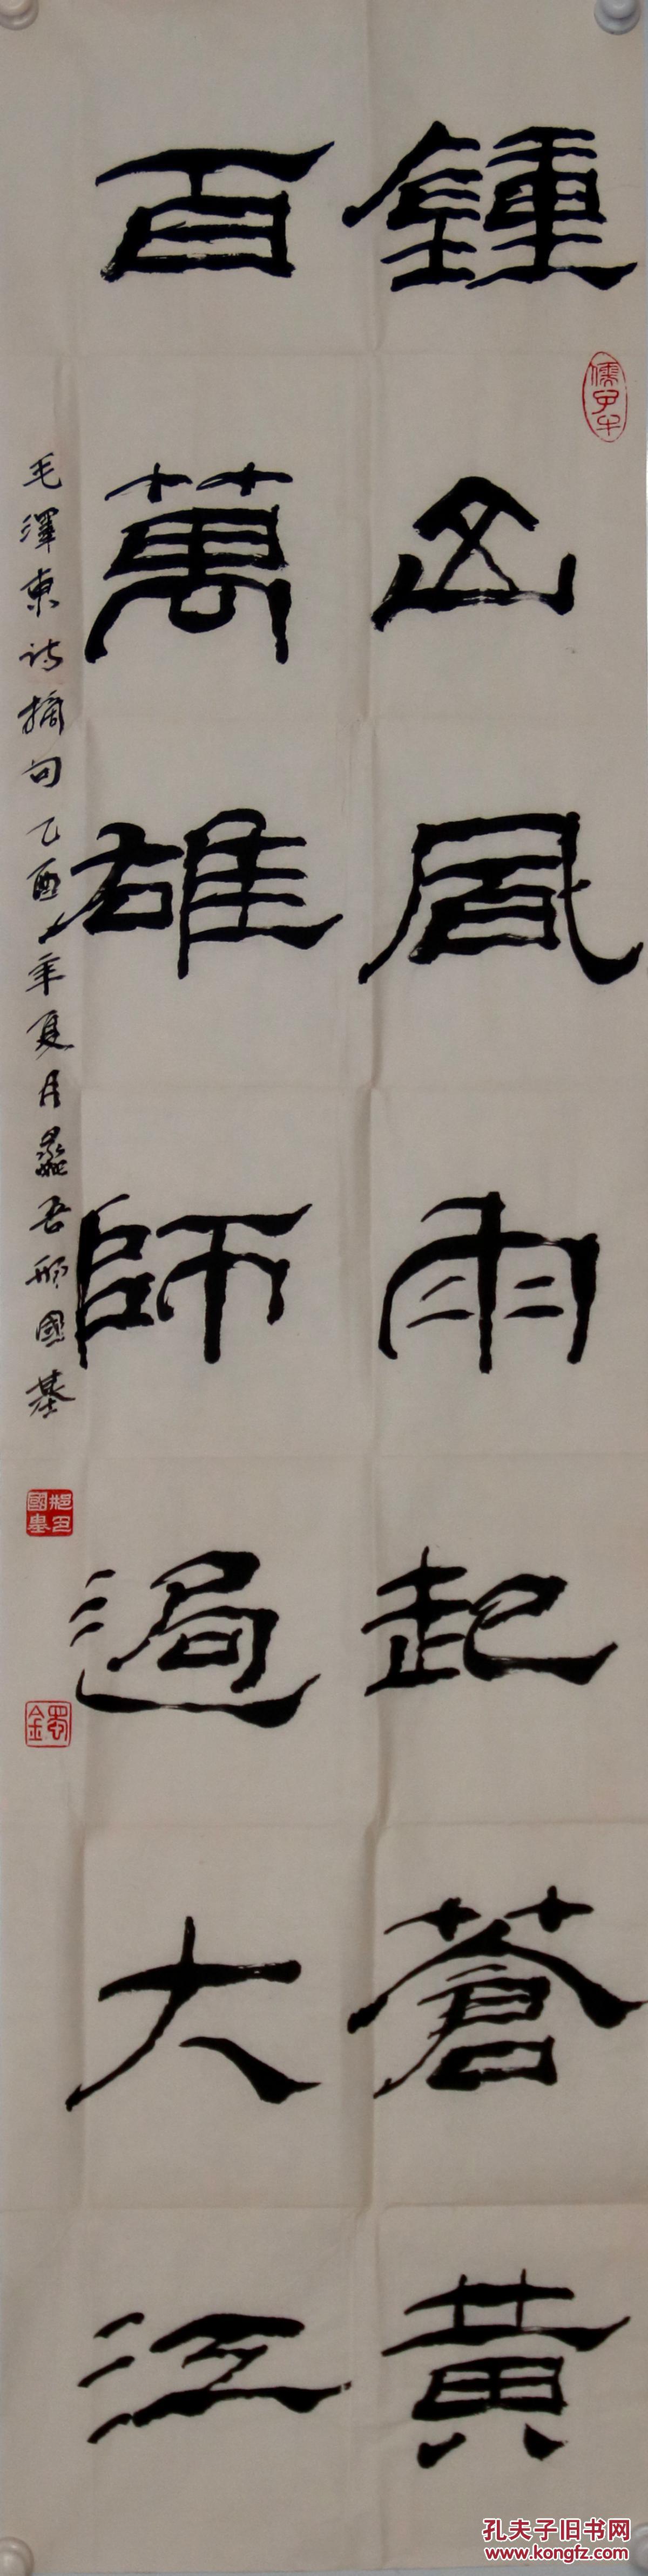 鍾山風雨起蒼黃
百萬雄師過大江
毛澤東诗摘句乙酉年夏月蠡吾邢國基
孔夫子旧书网
www.kongfz.com